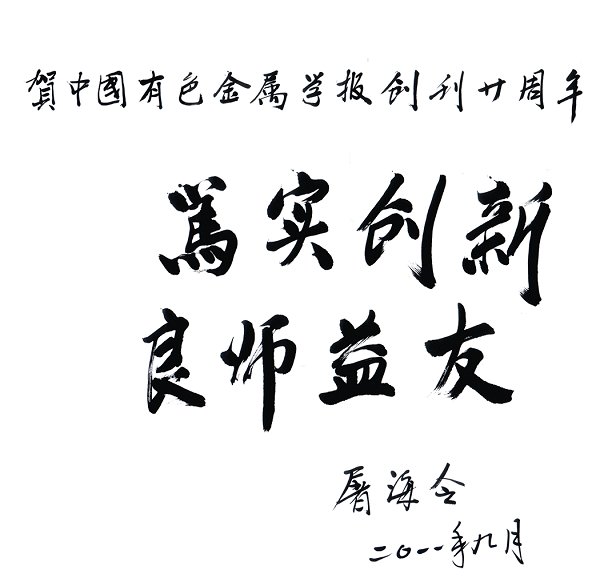 賀中國有色金属学报创刊廿周年
篤实创新
良师益友
屠海令
二〇一一年九月